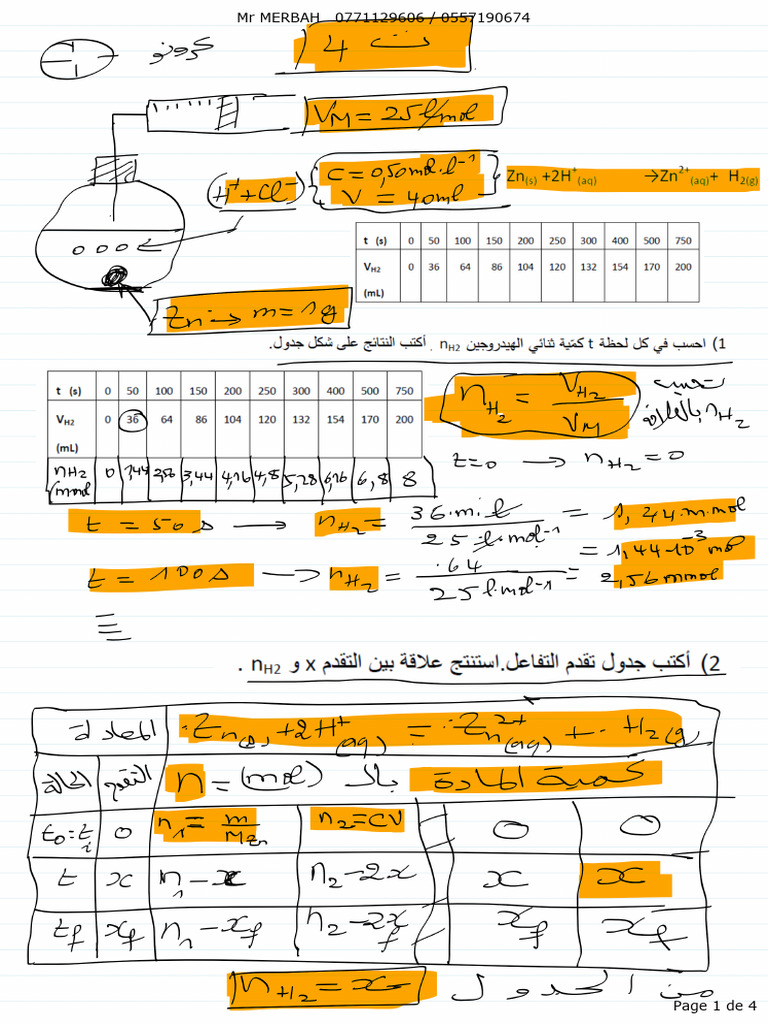 Mr MERBAH 0771129606 / 0557190674
ت 4
كرونو
VM = 25 l/mol
(H⁺+Cl⁻) C = 0,50 mol.l⁻¹
V = 40 ml
Zn(s) +2H⁺(aq) →Zn²⁺(aq)+ H2(g)
t (s) 0 50 100 150 200 250 300 400 500 750
VH2 (mL) 0 36 64 86 104 120 132 154 170 200
Zn → m = 1g
1) احسب في كل لحظة t كمية ثنائي الهيدروجين nH2 . أكتب النتائج على شكل جدول.
t (s) 0 50 100 150 200 250 300 400 500 750
VH2 (mL) 0 36 64 86 104 120 132 154 170 200
nH2 (mmol 0 1,44 2,56 3,44 4,16 4,8 5,28 6,16 6,8 8
nH2 = VH2 / VM
nH2 بالعلاقة
t=0 → nH2 = 0
t = 50 s → nH2 = 36.m.l / 25.l.mol⁻¹ = 1,44 m.mol
= 1,44.10⁻³ mol
t = 100 s → nH2 = .64 / 25 l.mol⁻¹ = 2,56 mmol
2) أكتب جدول تقدم التفاعل.استنتج علاقة بين التقدم x و nH2 .
المعادلة Zn(s) + 2H⁺(aq) = Zn²⁺(aq) + H2(g
الحالة التقدم كمية المادة بالـ n = (mol)
t0 = ti 0 n1 = m/MZn n2 = CV 0 0
t x n1 - x n2 - 2x x x
tf xf n1 - xf n2 - 2xf xf xf
من الجدول nH2 = x
Page 1 de 4